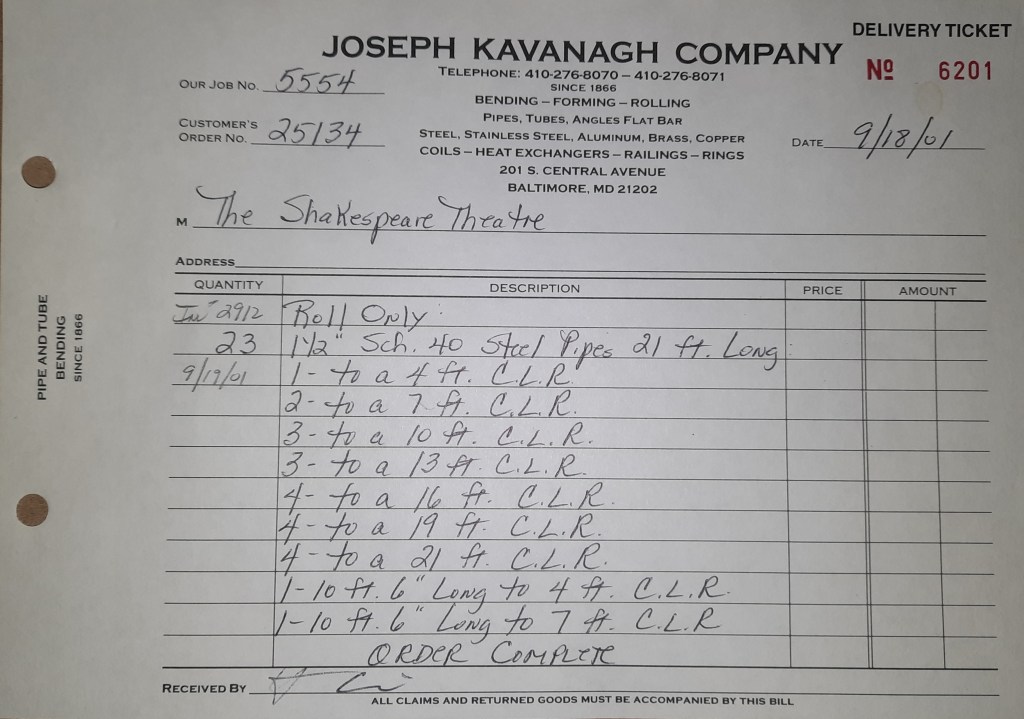 DELIVERY TICKET
JOSEPH KAVANAGH COMPANY
Nº 6201
TELEPHONE: 410-276-8070 – 410-276-8071
SINCE 1866
BENDING – FORMING – ROLLING
PIPES, TUBES, ANGLES FLAT BAR
STEEL, STAINLESS STEEL, ALUMINUM, BRASS, COPPER
COILS – HEAT EXCHANGERS – RAILINGS – RINGS
201 S. CENTRAL AVENUE
BALTIMORE, MD 21202
OUR JOB NO. 5554
CUSTOMER'S
ORDER NO. 25134
DATE 9/18/01
M The Shakespeare Theatre
ADDRESS
QUANTITY DESCRIPTION PRICE AMOUNT
Inv 2912 Roll Only:
23 1½" Sch. 40 Steel Pipes 21 ft. Long
9/19/01 1- to a 4 ft. C.L.R.
2- to a 7 ft. C.L.R.
3- to a 10 ft. C.L.R.
3- to a 13 ft. C.L.R.
4- to a 16 ft. C.L.R.
4- to a 19 ft. C.L.R.
4- to a 21 ft. C.L.R.
1-10 ft. 6" Long to 4 ft. C.L.R.
1-10 ft. 6" Long to 7 ft. C.L.R
ORDER COMPLETE
RECEIVED BY
ALL CLAIMS AND RETURNED GOODS MUST BE ACCOMPANIED BY THIS BILL
PIPE AND TUBE
BENDING
SINCE 1866